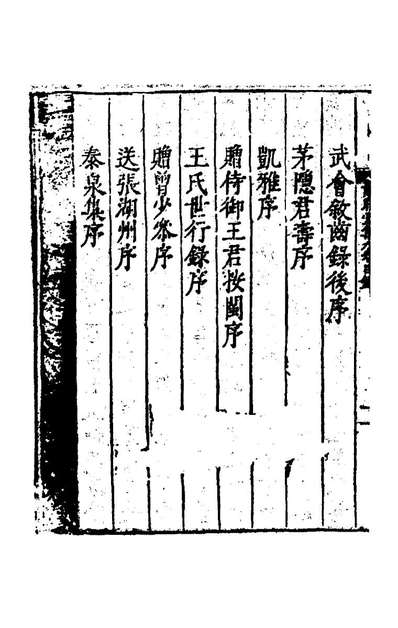 武會敘齒錄後序
茅隠君壽序
凱雅序
贈侍御王君按閩序
王氏世行錄序
贈曽少參序
送張湖州序
秦泉集序